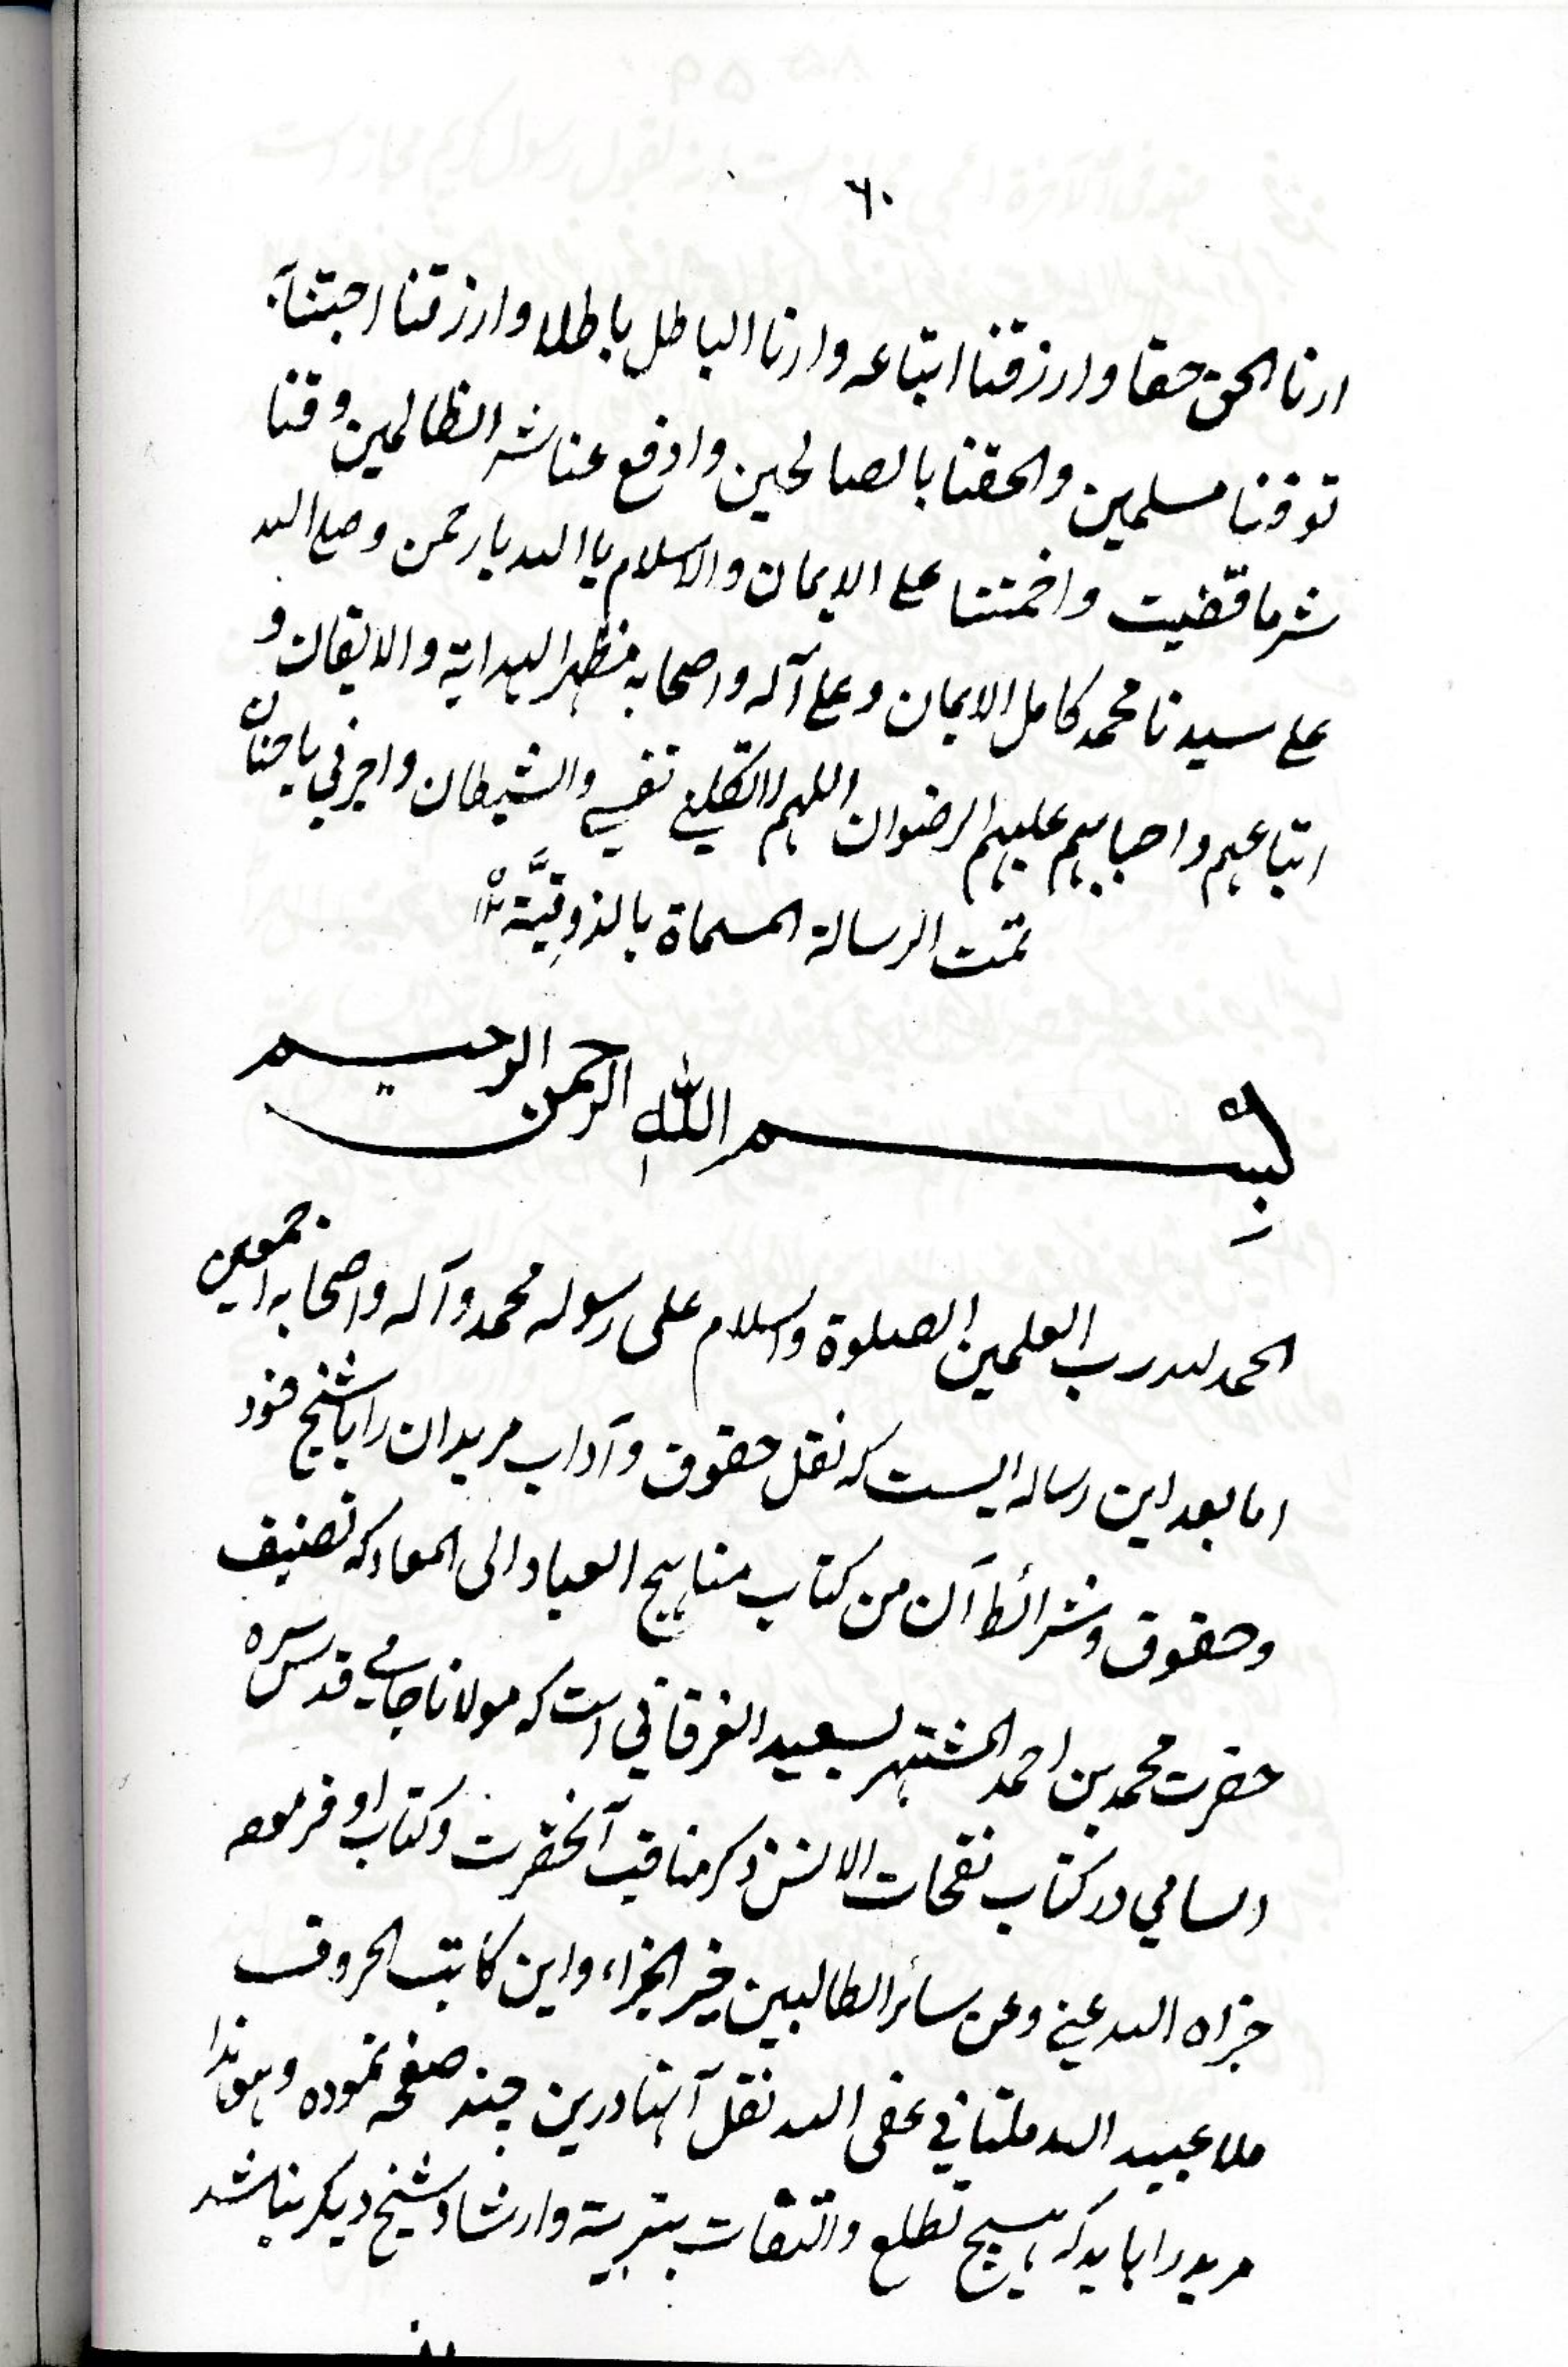 ٦٠
ارنا الحق حقا وارزقنا اتباعه وارنا الباطل باطلا وارزقنا اجتنابه
توفنا مسلمين والحقنا بالصالحين وادفع عنا شر الظالمين وقنا
شر ما قضيت واختمنا على الايمان والاسلام يا الله يا رحمن وصلى الله
على سيدنا محمد كامل الايمان وعلى آله واصحابه مظهر الهداية والايقان و
اتباعهم واحبابهم عليهم الرضوان اللهم لا تكلني نفسي والشيطان واجرني يا حنان
تمت الرسالة المسماة بالذوقيَّة
بسم الله الرحمن الرحيم
الحمد لله رب العلمين الصلوة والسلام على رسوله محمد وآله واصحابه اجمعين
اما بعد اين رساله ايست كه نقل حقوق وآداب مريدان را با شيخ خود
وحقوق وشرائط آن من كتاب مناهج العباد الى المعاد كه تصنيف
حضرت محمد بن احمد المشتهر بسعيد الفرقاني است كه مولانا جامي قدس سره
السامي در كتاب نفحات الانس ذكر مناقب آنحضرت وكتاب او فرموده
جزاه الله عني وعن سائر الطالبين خير الجزاء واين كاتب الحروف
ملا عبيد الله ملتاني عفى الله نقل آنها درين چند صفحه نموده وهو هذا
مريد را بايد كه هيچ تطلع والتفات بتربية وارشاد شيخ ديكر نباشد